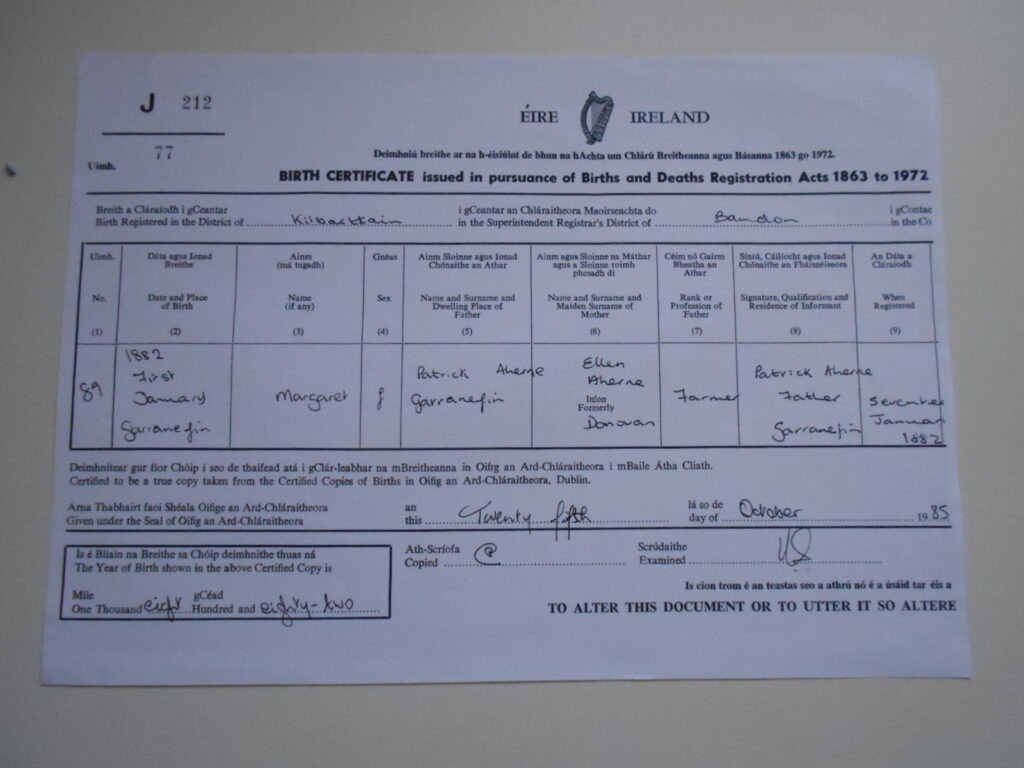 J 212
77
Uimh.
ÉIRE IRELAND
Deimhniú breithe ar na h-éisiúint de bhun na hAchta um Chlárú Breitheanna agus Básanna 1863 go 1972.
BIRTH CERTIFICATE issued in pursuance of Births and Deaths Registration Acts 1863 to 1972
Breith a Cláraíodh i gCeantar i gCeantar an Chláraitheora Maoirseachta do i gContae
Birth Registered in the District of Kilbrittain in the Superintendent Registrar's District of Bandon in the Co
Uimh. Dáta agus Ionad Breithe Ainm (má tugadh) Gnéas Ainm Sloinne agus Ionad Chónaithe an Athar Ainm agus Sloinne na Máthar agus a Sloinne roimh phosadh di Céim nó Gairm Bheatha an Athar Síniú, Cáilíocht agus Ionad Chónaithe an Fháisnéiseora An Dáta a Cláraíodh
No. Date and Place of Birth Name (if any) Sex Name and Surname and Dwelling Place of Father Name and Surname and Maiden Surname of Mother Rank or Profession of Father Signature, Qualification and Residence of Informant When Registered
(1) (2) (3) (4) (5) (6) (7) (8) (9)
89 1882 First January Garranefin Margaret f Patrick Aherne Garranefin Ellen Aherne Iníon Formerly Donovan Farmer Patrick Aherne Father Garranefin January 1882
Deimhnítear gur fíor Chóip í seo de thaifead atá i gClár-leabhar na mBreitheanna in Oifig an Ard-Chláraitheora i mBaile Átha Cliath.
Certified to be a true copy taken from the Certified Copies of Births in Oifig an Ard-Chláraitheora, Dublin.
Arna Thabhairt faoi Shéala Oifige an Ard-Chláraitheora an lá so de
Given under the Seal of Oifig an Ard-Chláraitheora this Twenty fifth day of October 1985
Is é Bliain na Breithe sa Chóip deimhnithe thuas ná
The Year of Birth shown in the above Certified Copy is
Míle gCéad
One Thousand eight Hundred and eighty-two
Ath-Scríofa Scrúdaithe
Copied Examined
Is cion trom é an teastas seo a athrú nó é a úsáid tar éis a
TO ALTER THIS DOCUMENT OR TO UTTER IT SO ALTERE